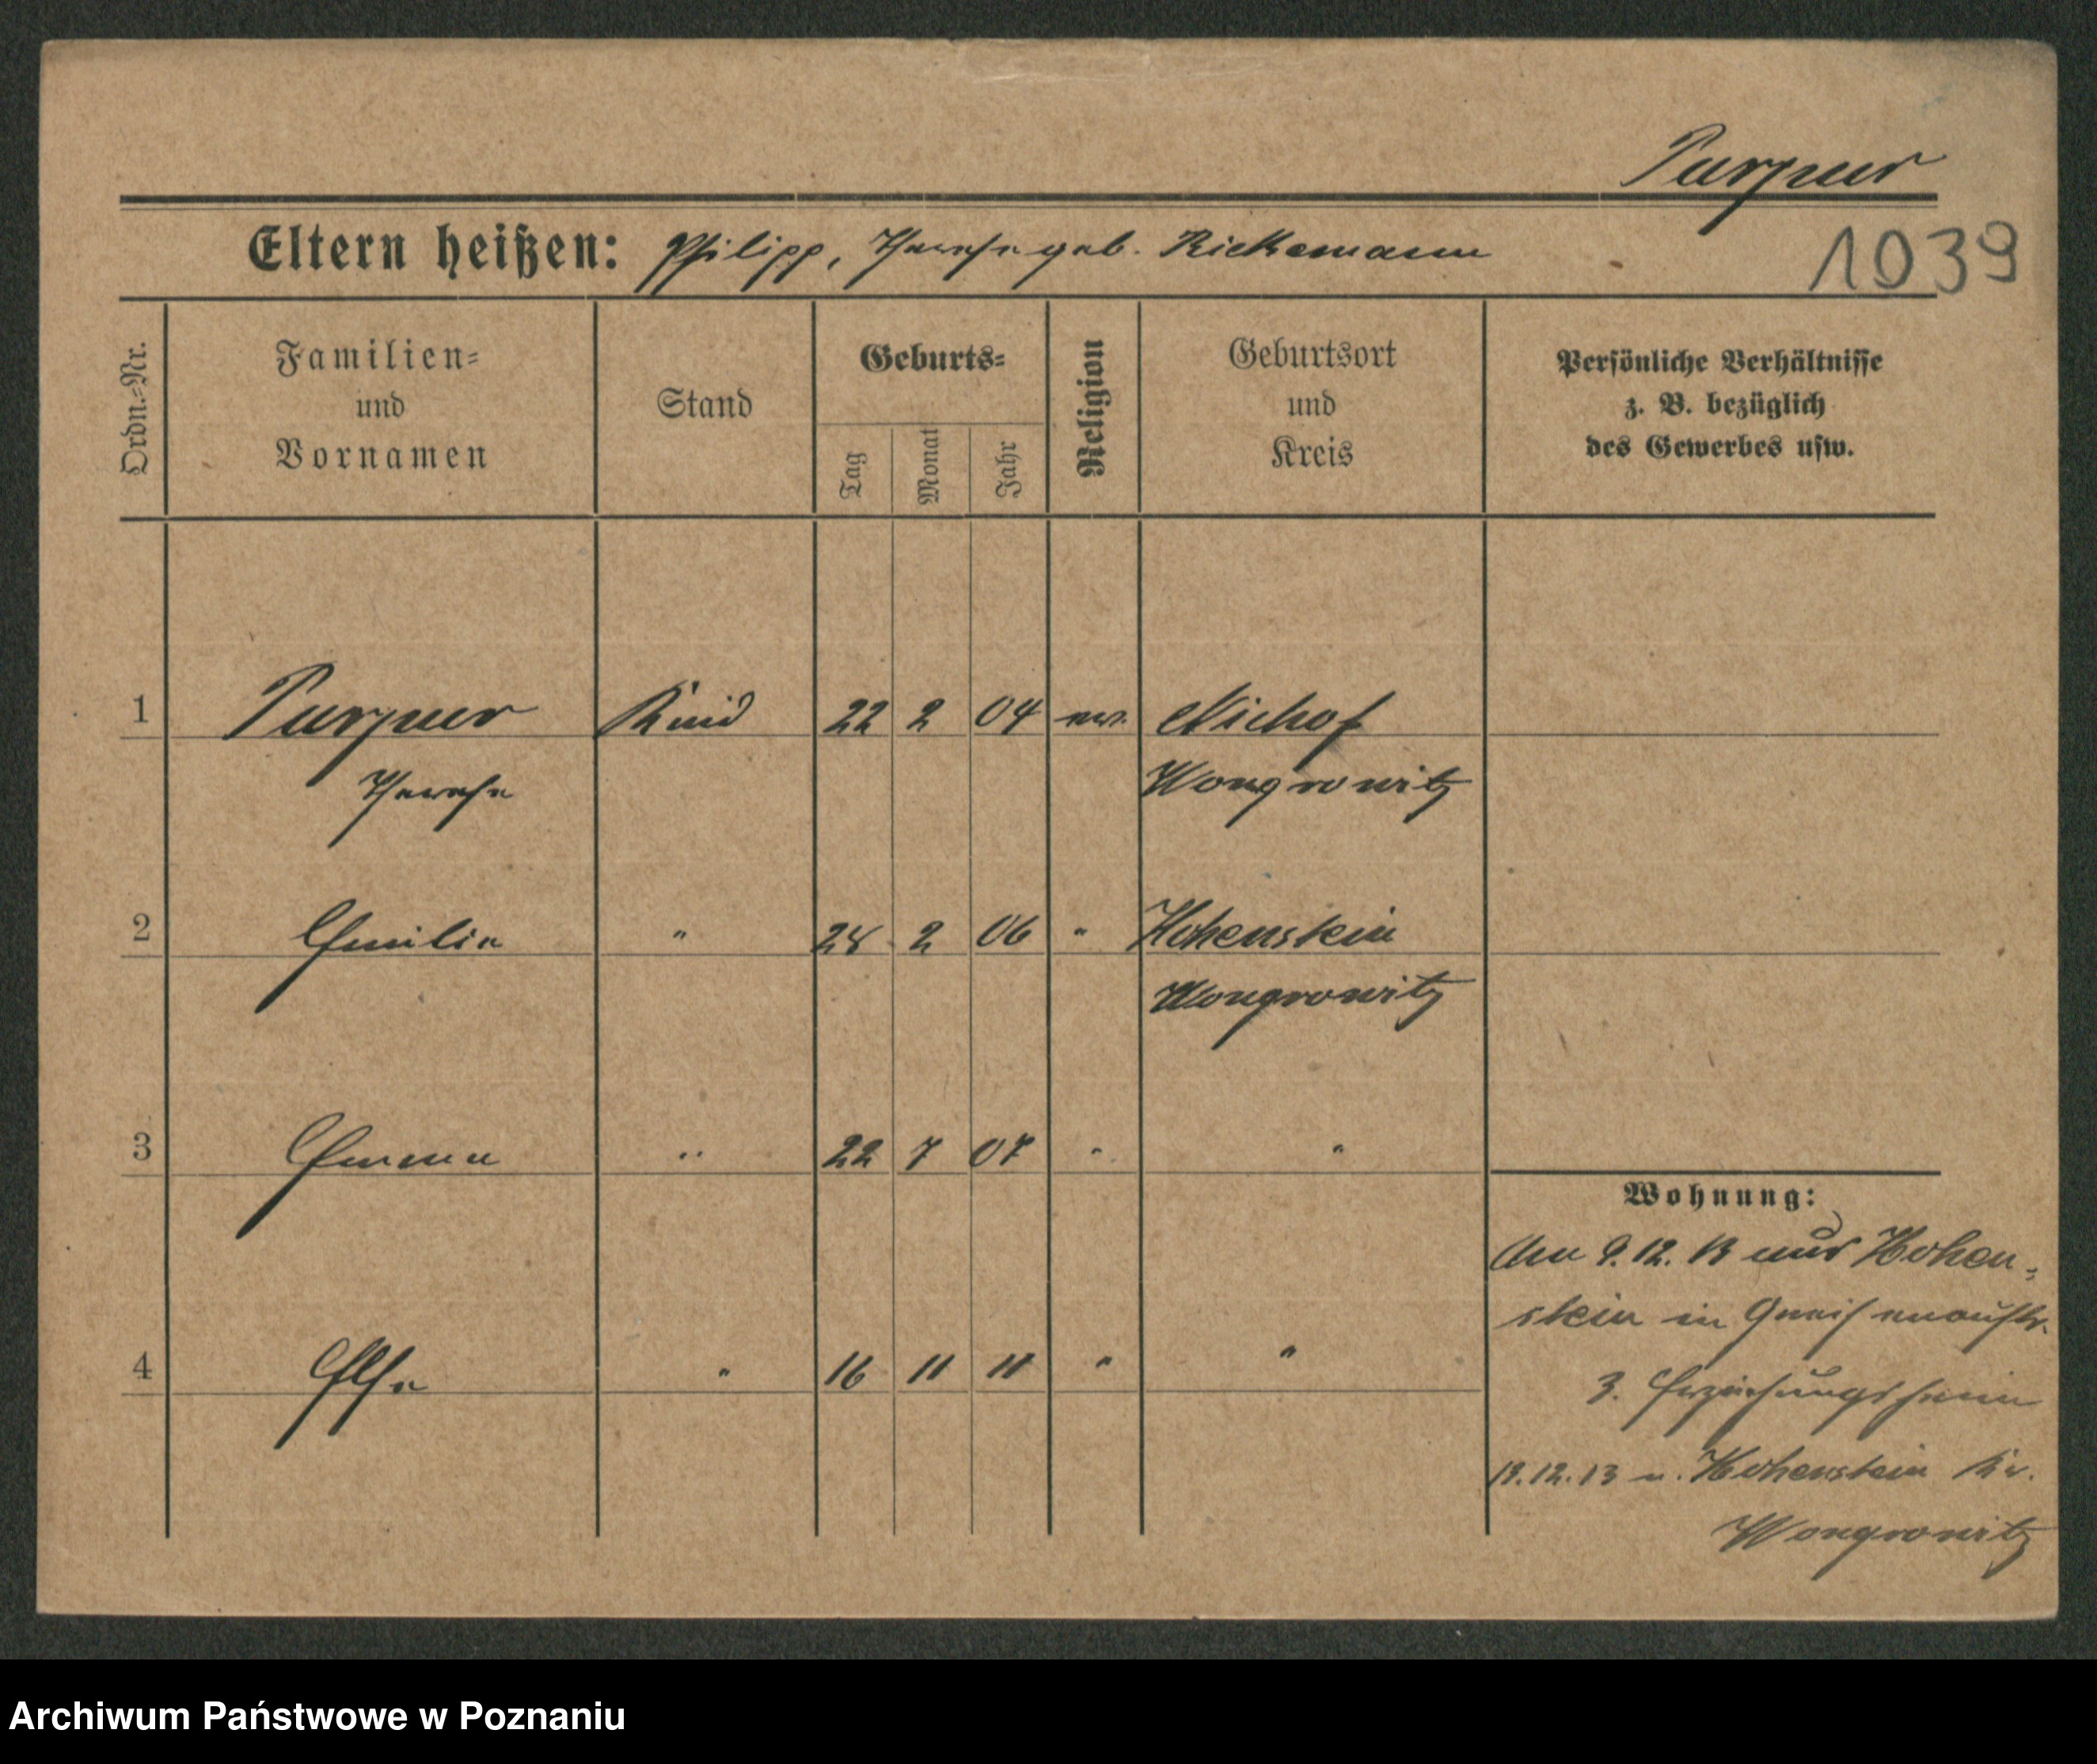 Purpur
Eltern heißen: Philipp, Therese geb. Rickemann
1039
Ordn.-Nr.
Familien-
und
Vornamen
Stand
Geburts-
Tag
Monat
Jahr
Religion
Geburtsort
und
Kreis
Persönliche Verhältnisse
z. B. bezüglich
des Gewerbes usw.
1 Purpur Kind 22 2 04 ev.
Therese Wongrowitz
2 Emilie " 2 06 " Hohenstein
Wongrowitz
3 Emma " 22 7 07 " "
Wohnung:
9.12.13 aus Hohen-
4 Else " 16 11 11 " "
stein in Gneisenaustr.
3. Erziehungsheim
19.12.13 n. Hohenstein Kr.
Wongrowitz
Archiwum Państwowe w Poznaniu